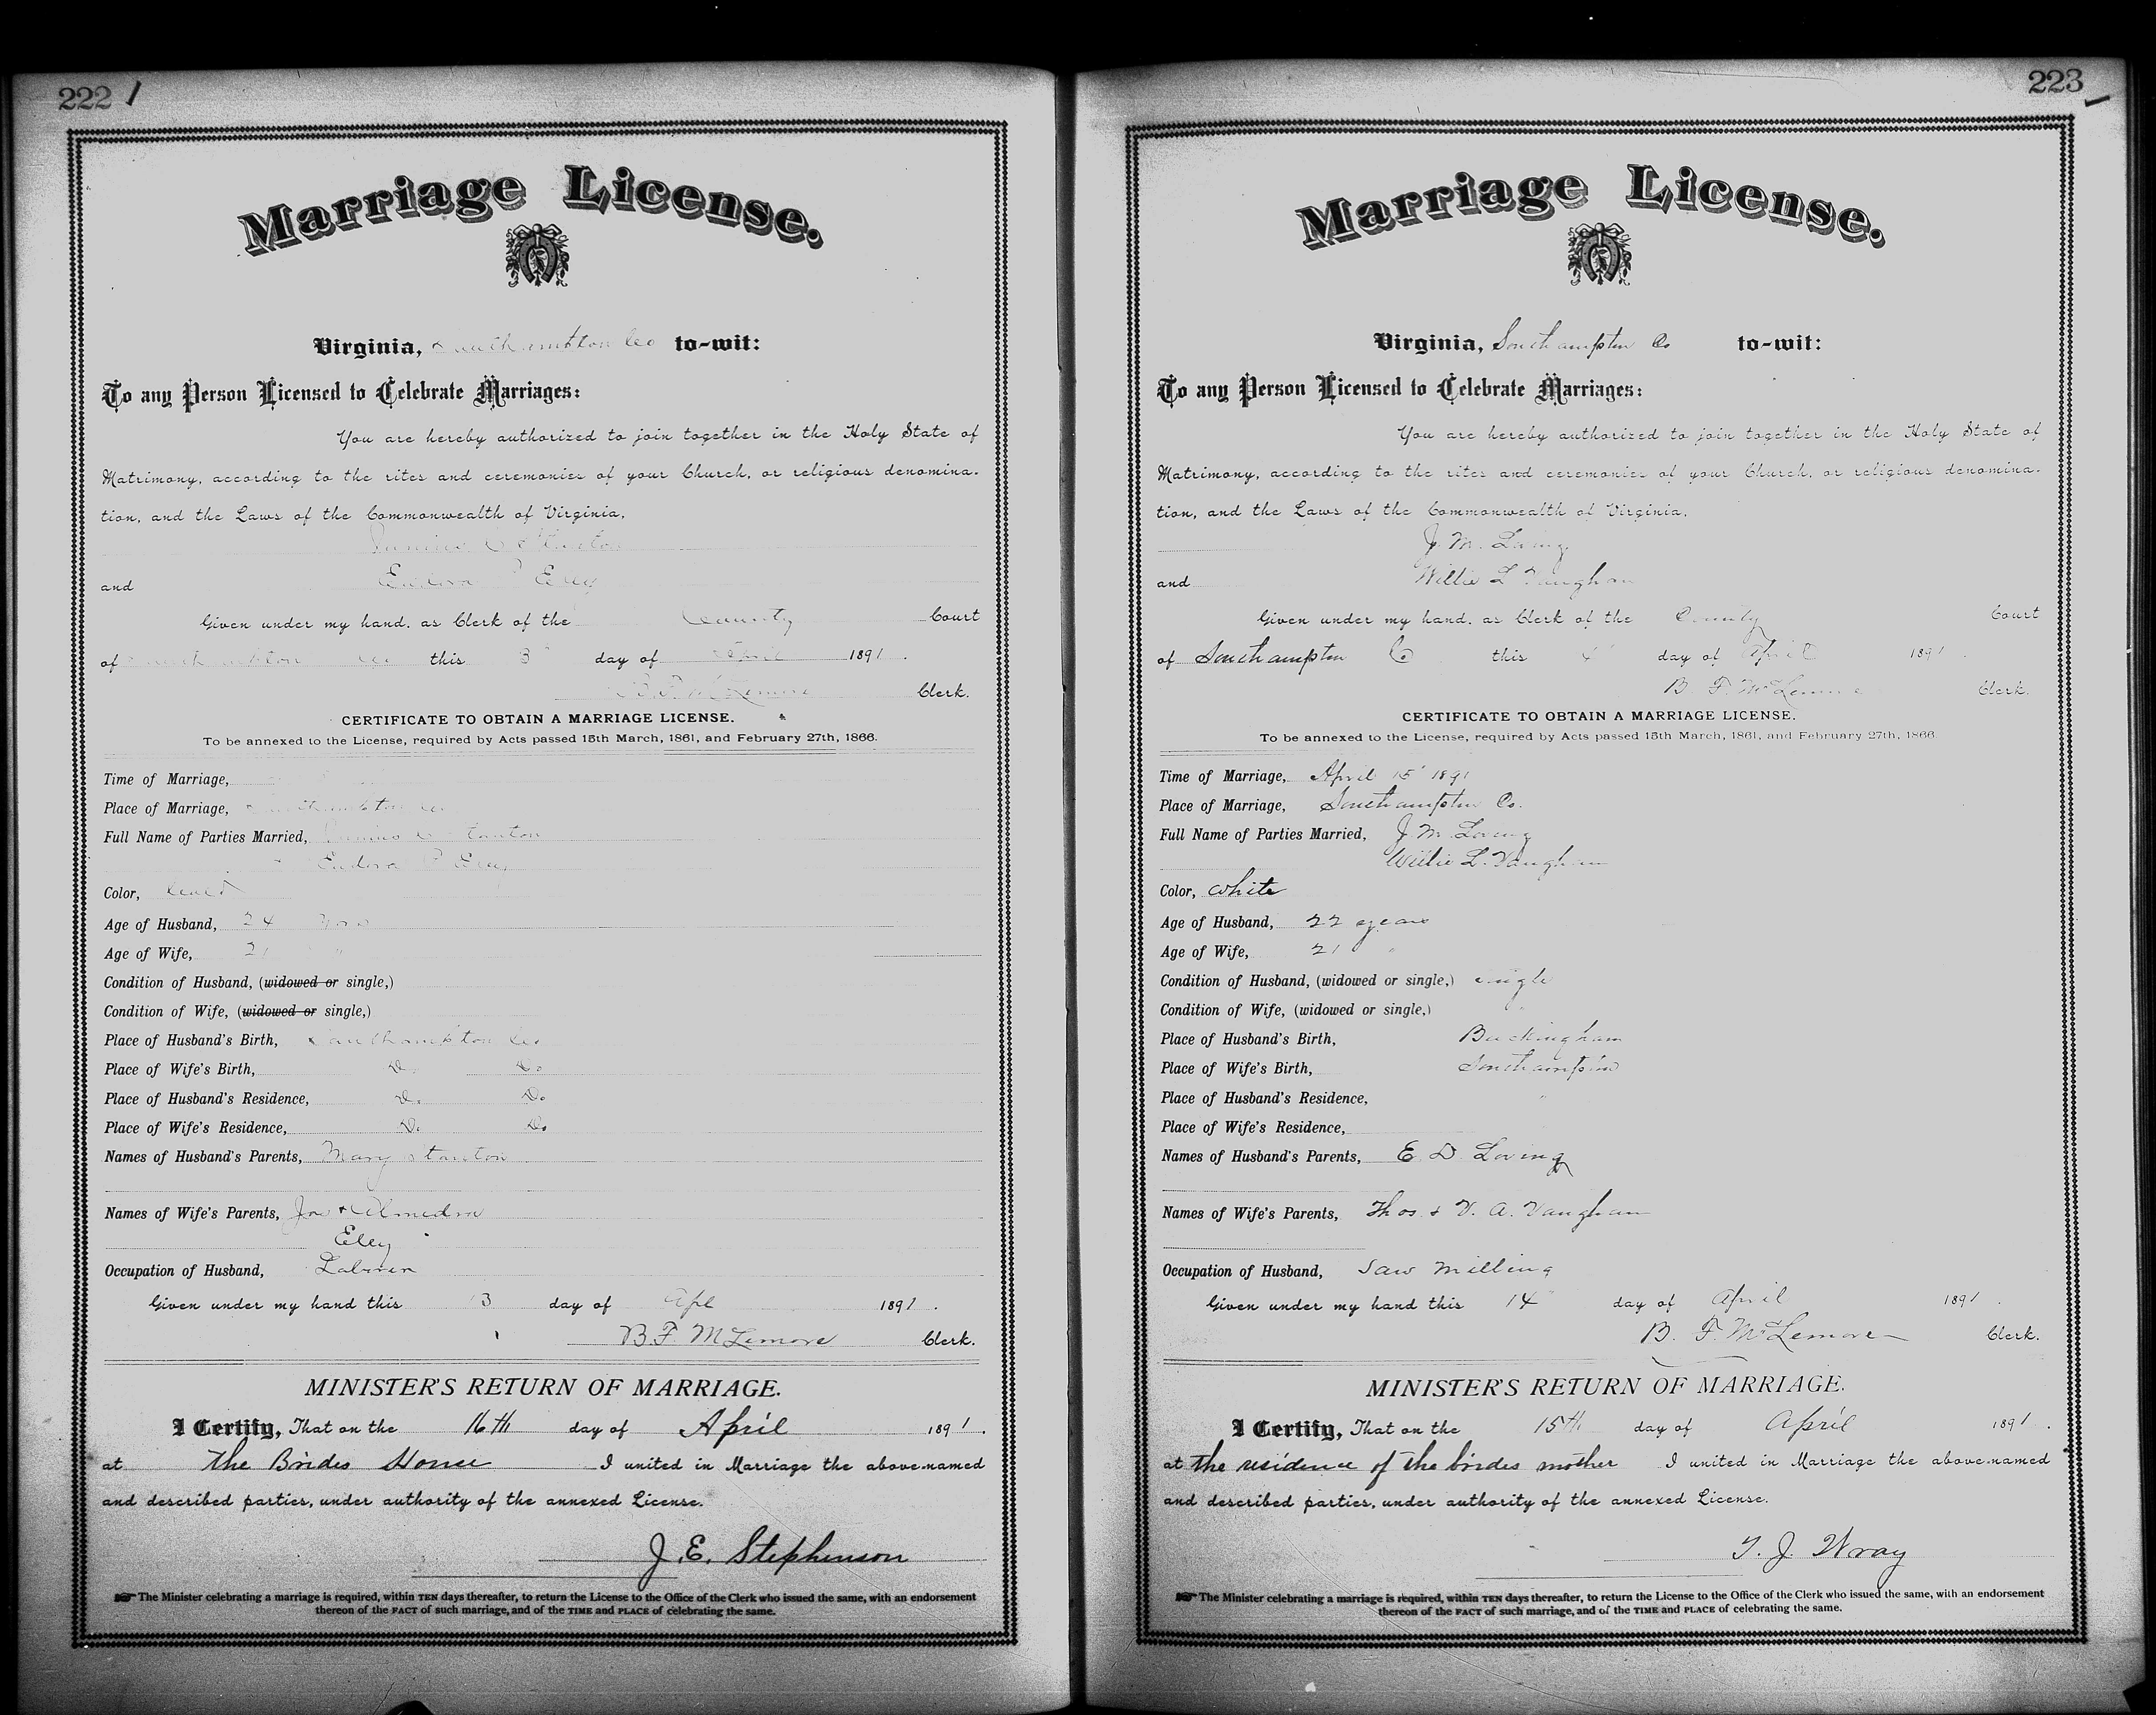 222
Marriage License.
Virginia, Southampton Co to-wit:
To any Person Licensed to Celebrate Marriages:
You are hereby authorized to join together in the Holy State of
Matrimony, according to the rites and ceremonies of your Church, or religious denomina-
tion, and the Laws of the Commonwealth of Virginia,
Junius Stanton
and Eudora P Eley
Given under my hand, as Clerk of the County Court
of Southampton Co this day of April 1891.
B. F. McLemore Clerk.
CERTIFICATE TO OBTAIN A MARRIAGE LICENSE.
To be annexed to the License, required by Acts passed 15th March, 1861, and February 27th, 1866.
Time of Marriage,
Place of Marriage, Southampton Co
Full Name of Parties Married, Junius Stanton
Eudora P Eley
Color,
Age of Husband, 24 yrs
Age of Wife, 21 "
Condition of Husband, (widowed or single,)
Condition of Wife, (widowed or single,)
Place of Husband's Birth, Southampton Co
Place of Wife's Birth, Do Do
Place of Husband's Residence, Do Do
Place of Wife's Residence, Do Do
Names of Husband's Parents, Mary Stanton
Names of Wife's Parents, Jos & Almedia
Eley
Occupation of Husband, Laborer
Given under my hand this 13 day of Apl 1891.
B. F. McLemore Clerk.
MINISTER'S RETURN OF MARRIAGE.
I Certify, That on the 16th day of April 1891.
at the Brides House I united in Marriage the above-named
and described parties, under authority of the annexed License.
J. E. Stephenson
The Minister celebrating a marriage is required, within TEN days thereafter, to return the License to the Office of the Clerk who issued the same, with an endorsement
thereon of the FACT of such marriage, and of the TIME and PLACE of celebrating the same.
223
Marriage License.
Virginia, Southampton Co to-wit:
To any Person Licensed to Celebrate Marriages:
You are hereby authorized to join together in the Holy State of
Matrimony, according to the rites and ceremonies of your Church, or religious denomina-
tion, and the Laws of the Commonwealth of Virginia,
J. M. Loving
and Willie L Vaughan
Given under my hand, as Clerk of the County Court
of Southampton Co this day of April 1891.
B. F. McLemore Clerk.
CERTIFICATE TO OBTAIN A MARRIAGE LICENSE.
To be annexed to the License, required by Acts passed 15th March, 1861, and February 27th, 1866.
Time of Marriage, April 15" 1891
Place of Marriage, Southampton Co.
Full Name of Parties Married, J. M. Loving
Willie L. Vaughan
Color, White
Age of Husband, 22 years
Age of Wife, 21 "
Condition of Husband, (widowed or single,) single
Condition of Wife, (widowed or single,) "
Place of Husband's Birth, Buckingham
Place of Wife's Birth, Southampton
Place of Husband's Residence, "
Place of Wife's Residence,
Names of Husband's Parents, E. D. Loving
Names of Wife's Parents, Thos. & V. A. Vaughan
Occupation of Husband, Saw Milling
Given under my hand this 14" day of April 1891.
B. F. McLemore Clerk.
MINISTER'S RETURN OF MARRIAGE.
I Certify, That on the 15th day of April 1891.
at the residence of the brides mother I united in Marriage the above-named
and described parties, under authority of the annexed License.
T. J. Wray
The Minister celebrating a marriage is required, within TEN days thereafter, to return the License to the Office of the Clerk who issued the same, with an endorsement
thereon of the FACT of such marriage, and of the TIME and PLACE of celebrating the same.